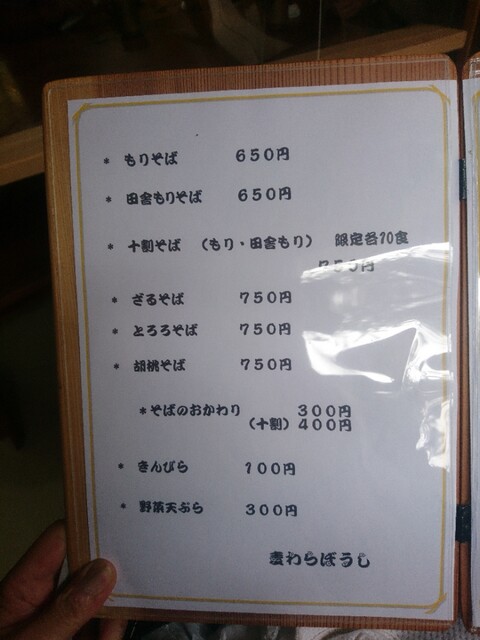 * もりそば 650円
* 田舎もりそば 650円
* 十割そば （もり・田舎もり） 限定各10食
50円
* ざるそば 750円
* とろろそば 750円
* 胡桃そば 750円
*そばのおかわり 300円
（十割）400円
* きんぴら 100円
* 野菜天ぷら 300円
麦わらぼうし